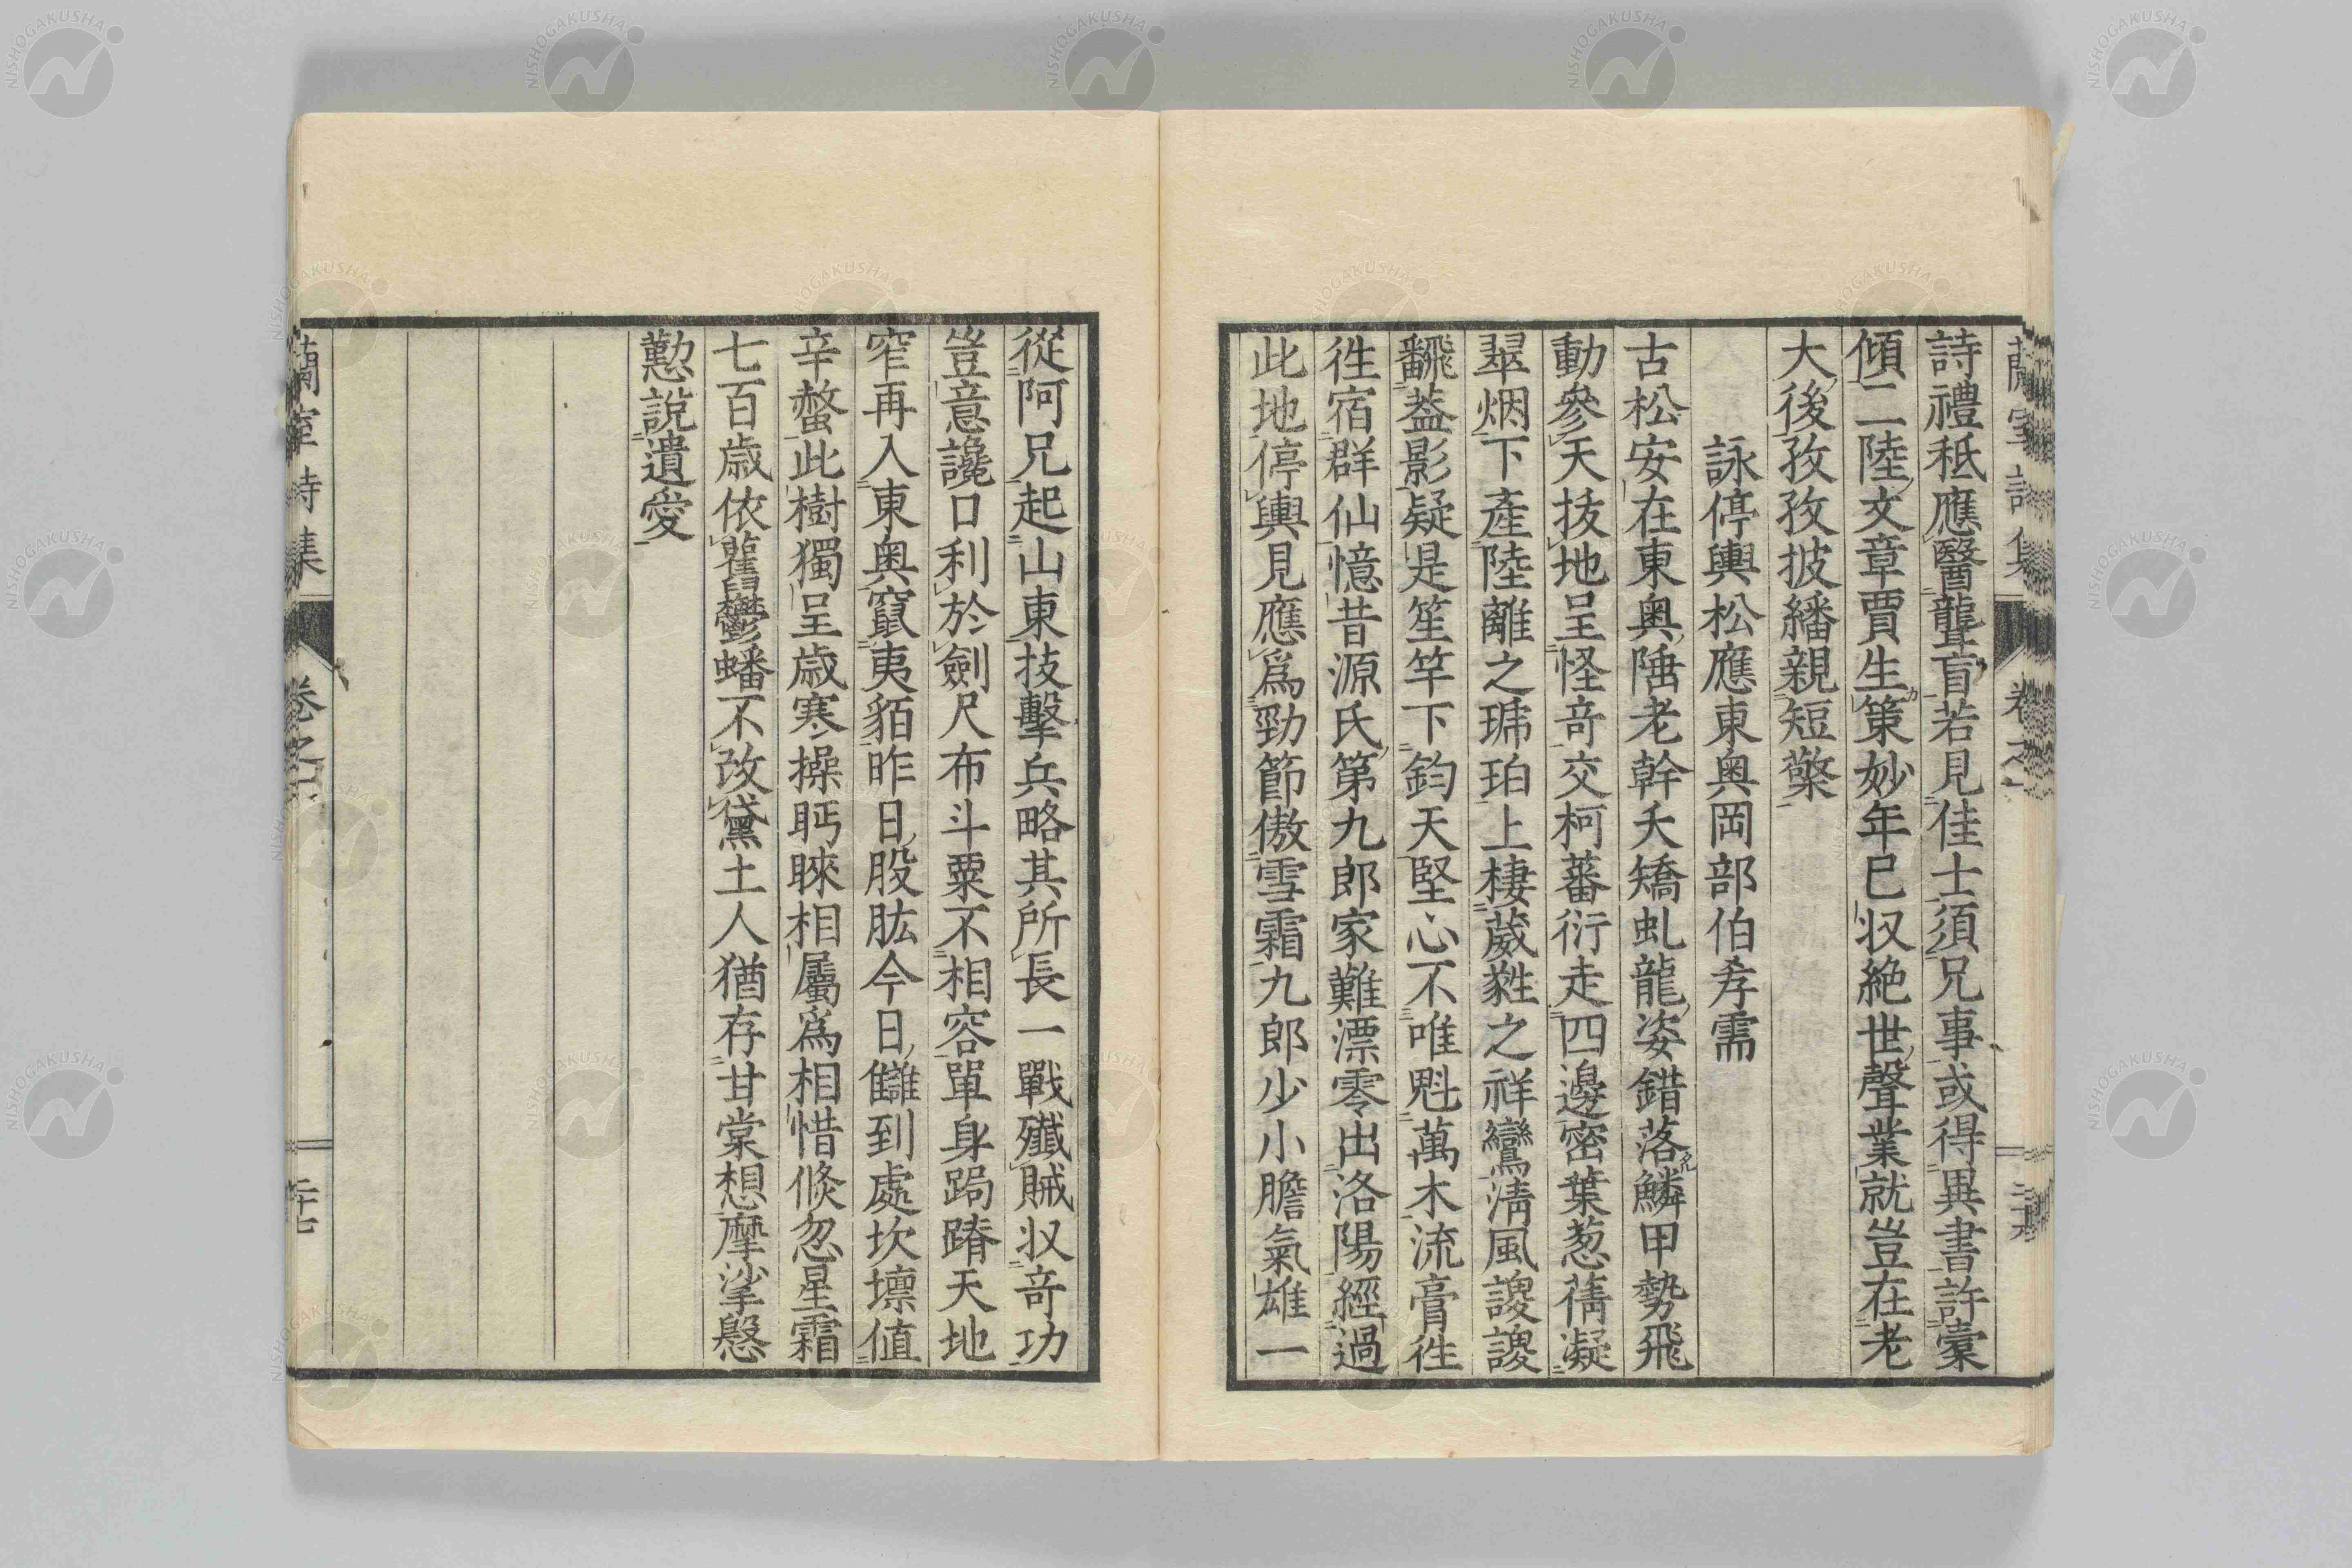 詩禮秖應醫聾盲若見佳士須兄事或得異書許稾
傾二陸文章賈生策妙年已収絶世聲業就豈在老
大後孜孜披繙親短檠
詠停輿松應東奥岡部伯孝需
古松安在東奥陲老幹夭矯虬龍姿錯落鱗甲勢飛
動參天抜地呈怪竒交柯蕃衍走四邊密葉葱蒨凝
翠烟下產陸離之琥珀上棲葳蕤之祥鸞淸風謖謖
飜葢影疑是笙竽下鈞天堅心不唯魁萬木流膏徃
徃宿群仙憶昔源氏第九郎家難漂零出洛陽經過
此地停輿見應爲勁節傲雪霜九郎少小膽氣雄一
從阿兄起山東技擊兵略其所長一戰殱賊収竒功
豈意讒口利於劍尺布斗粟不相容單身跼蹐天地
窄再入東奥竄夷貊昨日股肱今日讎到處坎壈値
辛螫此樹獨呈歳寒操眄睞相屬爲相惜倏忽星霜
七百歳依舊鬱蟠不改黛土人猶存甘棠想摩挲慇
懃說遺愛
蘭室詩集
卷之
蘭室詩集
卷之